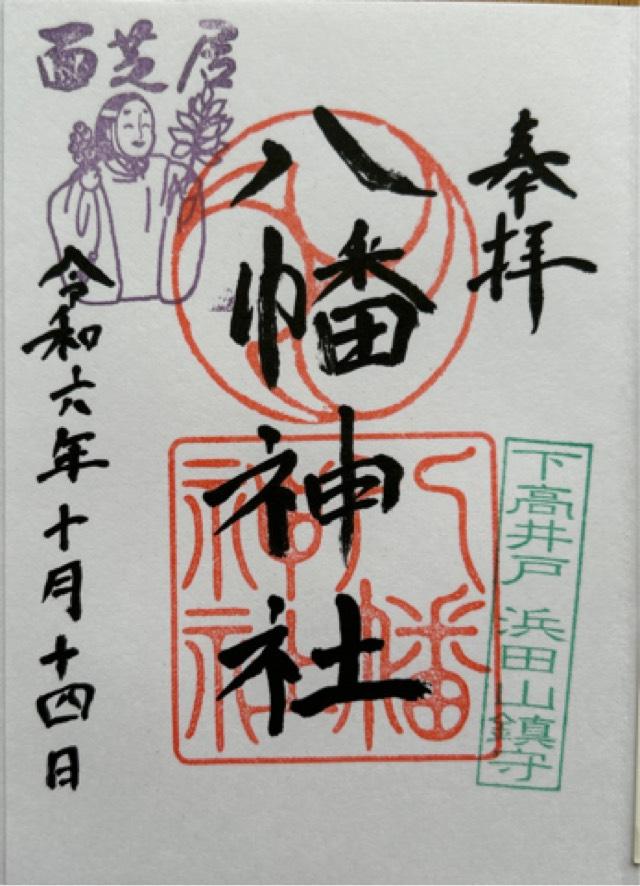 奉拝
八幡神社
令和六年十月十四日
面芝居
八幡神社
下高井戸 浜田山鎮守